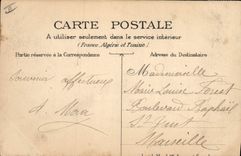 CARTE POSTALE
A utiliser seulement dans le service intérieur
(France, Algérie et Tunisie)
Partie réservée à la Correspondance
Adresse du Destinataire
Souvenir affectueux
Mademoiselle
Marie Louise
Boulevard Raphaël
St Just
Marseille